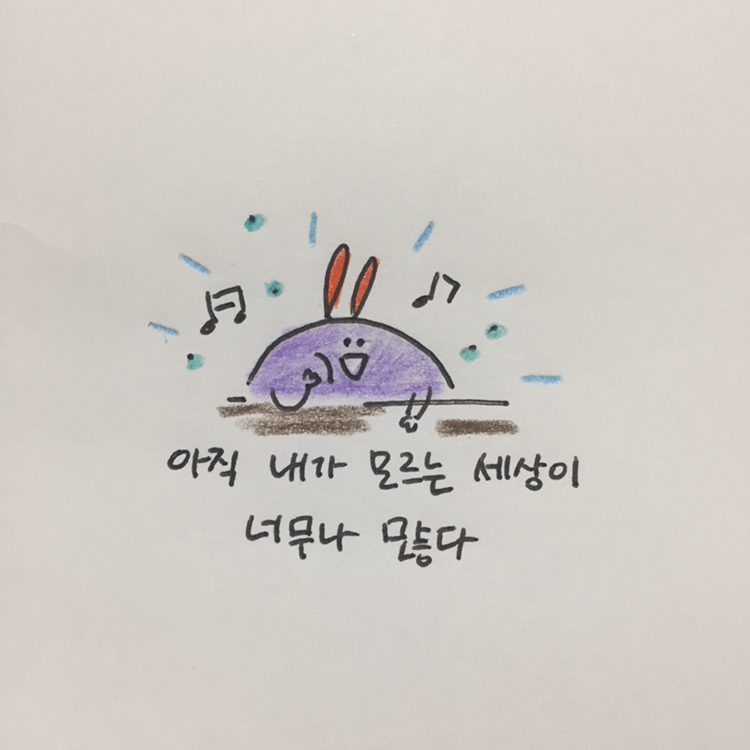 아직 내가 모르는 세상이
너무나 많다